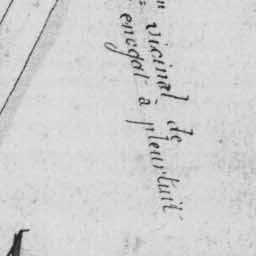 n vicinal de
enegat à pleurtuit